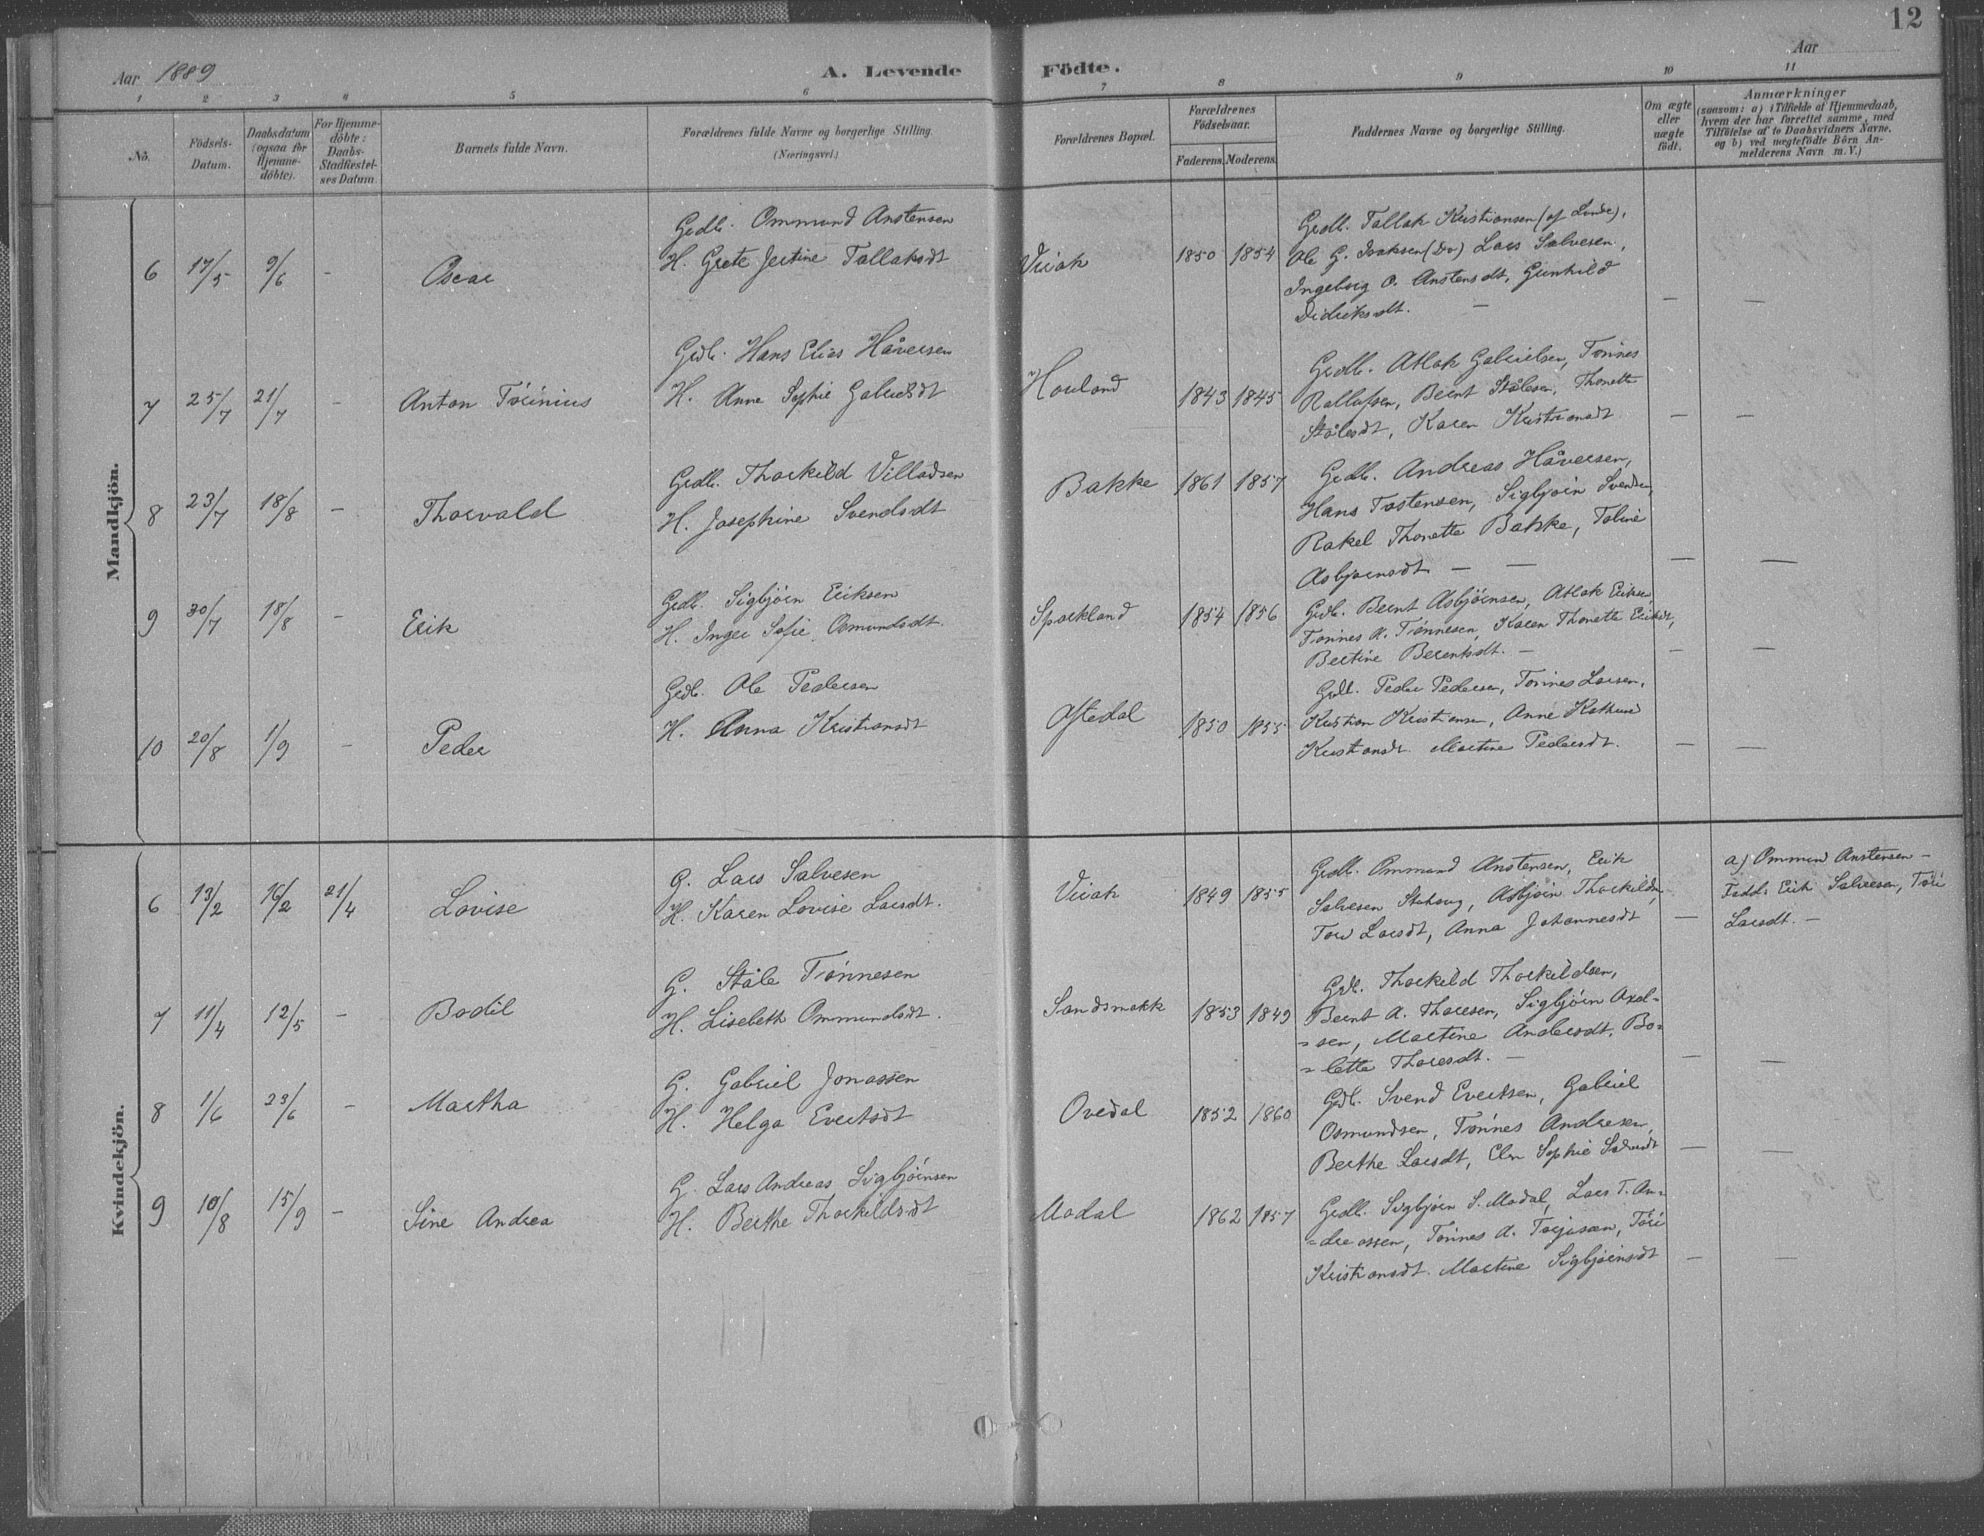 12
Aar 1889
A. Levende
Födte.
Aar
1 2 3 4 5 6 7 8 9 10 11
No.
Födsels-Datum.
Daabsdatum (ogsaa for Hjemme-döbte).
For Hjemme-döbte: Daabs-Stadfæstel-ses Datum.
Barnets fulde Navn.
Forældrenes fulde Navne og borgerlige Stilling.
(Næringsvei.)
Forældrenes Bopæl.
Forældrenes Födselsaar.
Faderens. Moderens.
Faddernes Navne og borgerlige Stilling.
Om ægte eller uægte födt.
Anmærkninger
(saasom: a) i Tilfælde af Hjemmedaab, hvem der har forrettet samme, med Tilföielse af to Daabsvidners Navne, og b) ved uægtefödte Börn An-melderens Navn m. V.)
Mandkjön.
6 17/5 9/6 - Oscar
Grdb. Ommund Anstensen
H. Grete Jertine Tallaksdt
Virak 1850 1854
Grdb. Tallak Kristiansen (af Linde),
Ole G. Isaksen (Do) Lars Salvesen,
Ingeborg O. Anstensdt, Gunhild
Didriksdt. — — —
7 25/7 21/7 - Anton Törinius
Grdb. Hans Elias Håversen
H. Anne Sophie Gabrielsdt
Houland 1843 1845
Grdb. Atlak Gabrielsen, Tønnes
Rallufsen, Bernt Stålesen, Thonette
Stålesdt, Karen Kristiansdt — —
8 23/7 18/8 - Thorvald
Grdb. Thorkild Villadsen
H. Josephine Svendsdt
Bakke 1861 1857
Grdb. Andreas Håversen,
Hans Tostensen, Sigbjørn Svendsen,
Rakel Thonette Bakke, Taline
Asbjørnsdt — — — —
9 30/7 18/8 - Erik
Grdb. Sigbjørn Eriksen
H. Inger Sofie Osmundsdt.
Sporkland 1854 1856
Grdb. Bernt Asbjørnsen, Atlak Eriksen,
Tønnes A. Tønnesen, Karen Thonette Eriksdt,
Bertine Berentsdt. — — —
10 20/8 1/9 - Peder
Grdb. Ole Pedersen
H. Anna Kristiansdt
Oftedal 1850 1855
Grdb. Peder Pedersen, Tønnes Larsen,
Kristian Kristiansen, Anne Kathrine
Kristiansdt. Martine Pedersdt. — —
Kvindekjön.
6 13/2 16/2 21/4 Lovise
G. Lars Salvesen
H. Karen Lovise Larsdt.
Virak 1849 1855
Grdb. Ommund Anstensen, Erik
Salvesen Stehaug, Asbjørn Thorkildsen,
Tore Larsdt, Anna Johannesdt —
a) Ommun Anstensen —
Fadd. Erik Salvesen, Töri
Larsdt. —
7 11/4 12/5 - Bodil
G. Ståle Tønnesen
H. Lisebeth Ommundsdt.
Sandsmark 1853 1849
Grdb. Thorkild Thorkildsen,
Bernt A. Thoresen, Sigbjørn Axel-
=sen, Martine Andersdt. Bo-
=lette Thoresdt. — — —
8 1/6 23/6 - Martha
G. Gabriel Jonassen
H. Helga Evertsdt
Ovedal 1852 1860
Grdb. Svend Evertsen, Gabriel
Osmundsen, Tønnes Andresen,
Berthe Larsdt, Elen Sophie Salvesdt — —
9 10/8 15/9 - Sine Andrea
G. Lars Andreas Sigbjørnsen
H. Berthe Thorkildsdt
Modal 1862 1857
Grdb. Sigbjørn S. Modal, Lars T. An-
=dreassen, Tønnes A. Torjusen, Töri
Kristiansdt. Martine Sigbjørnsdt — —